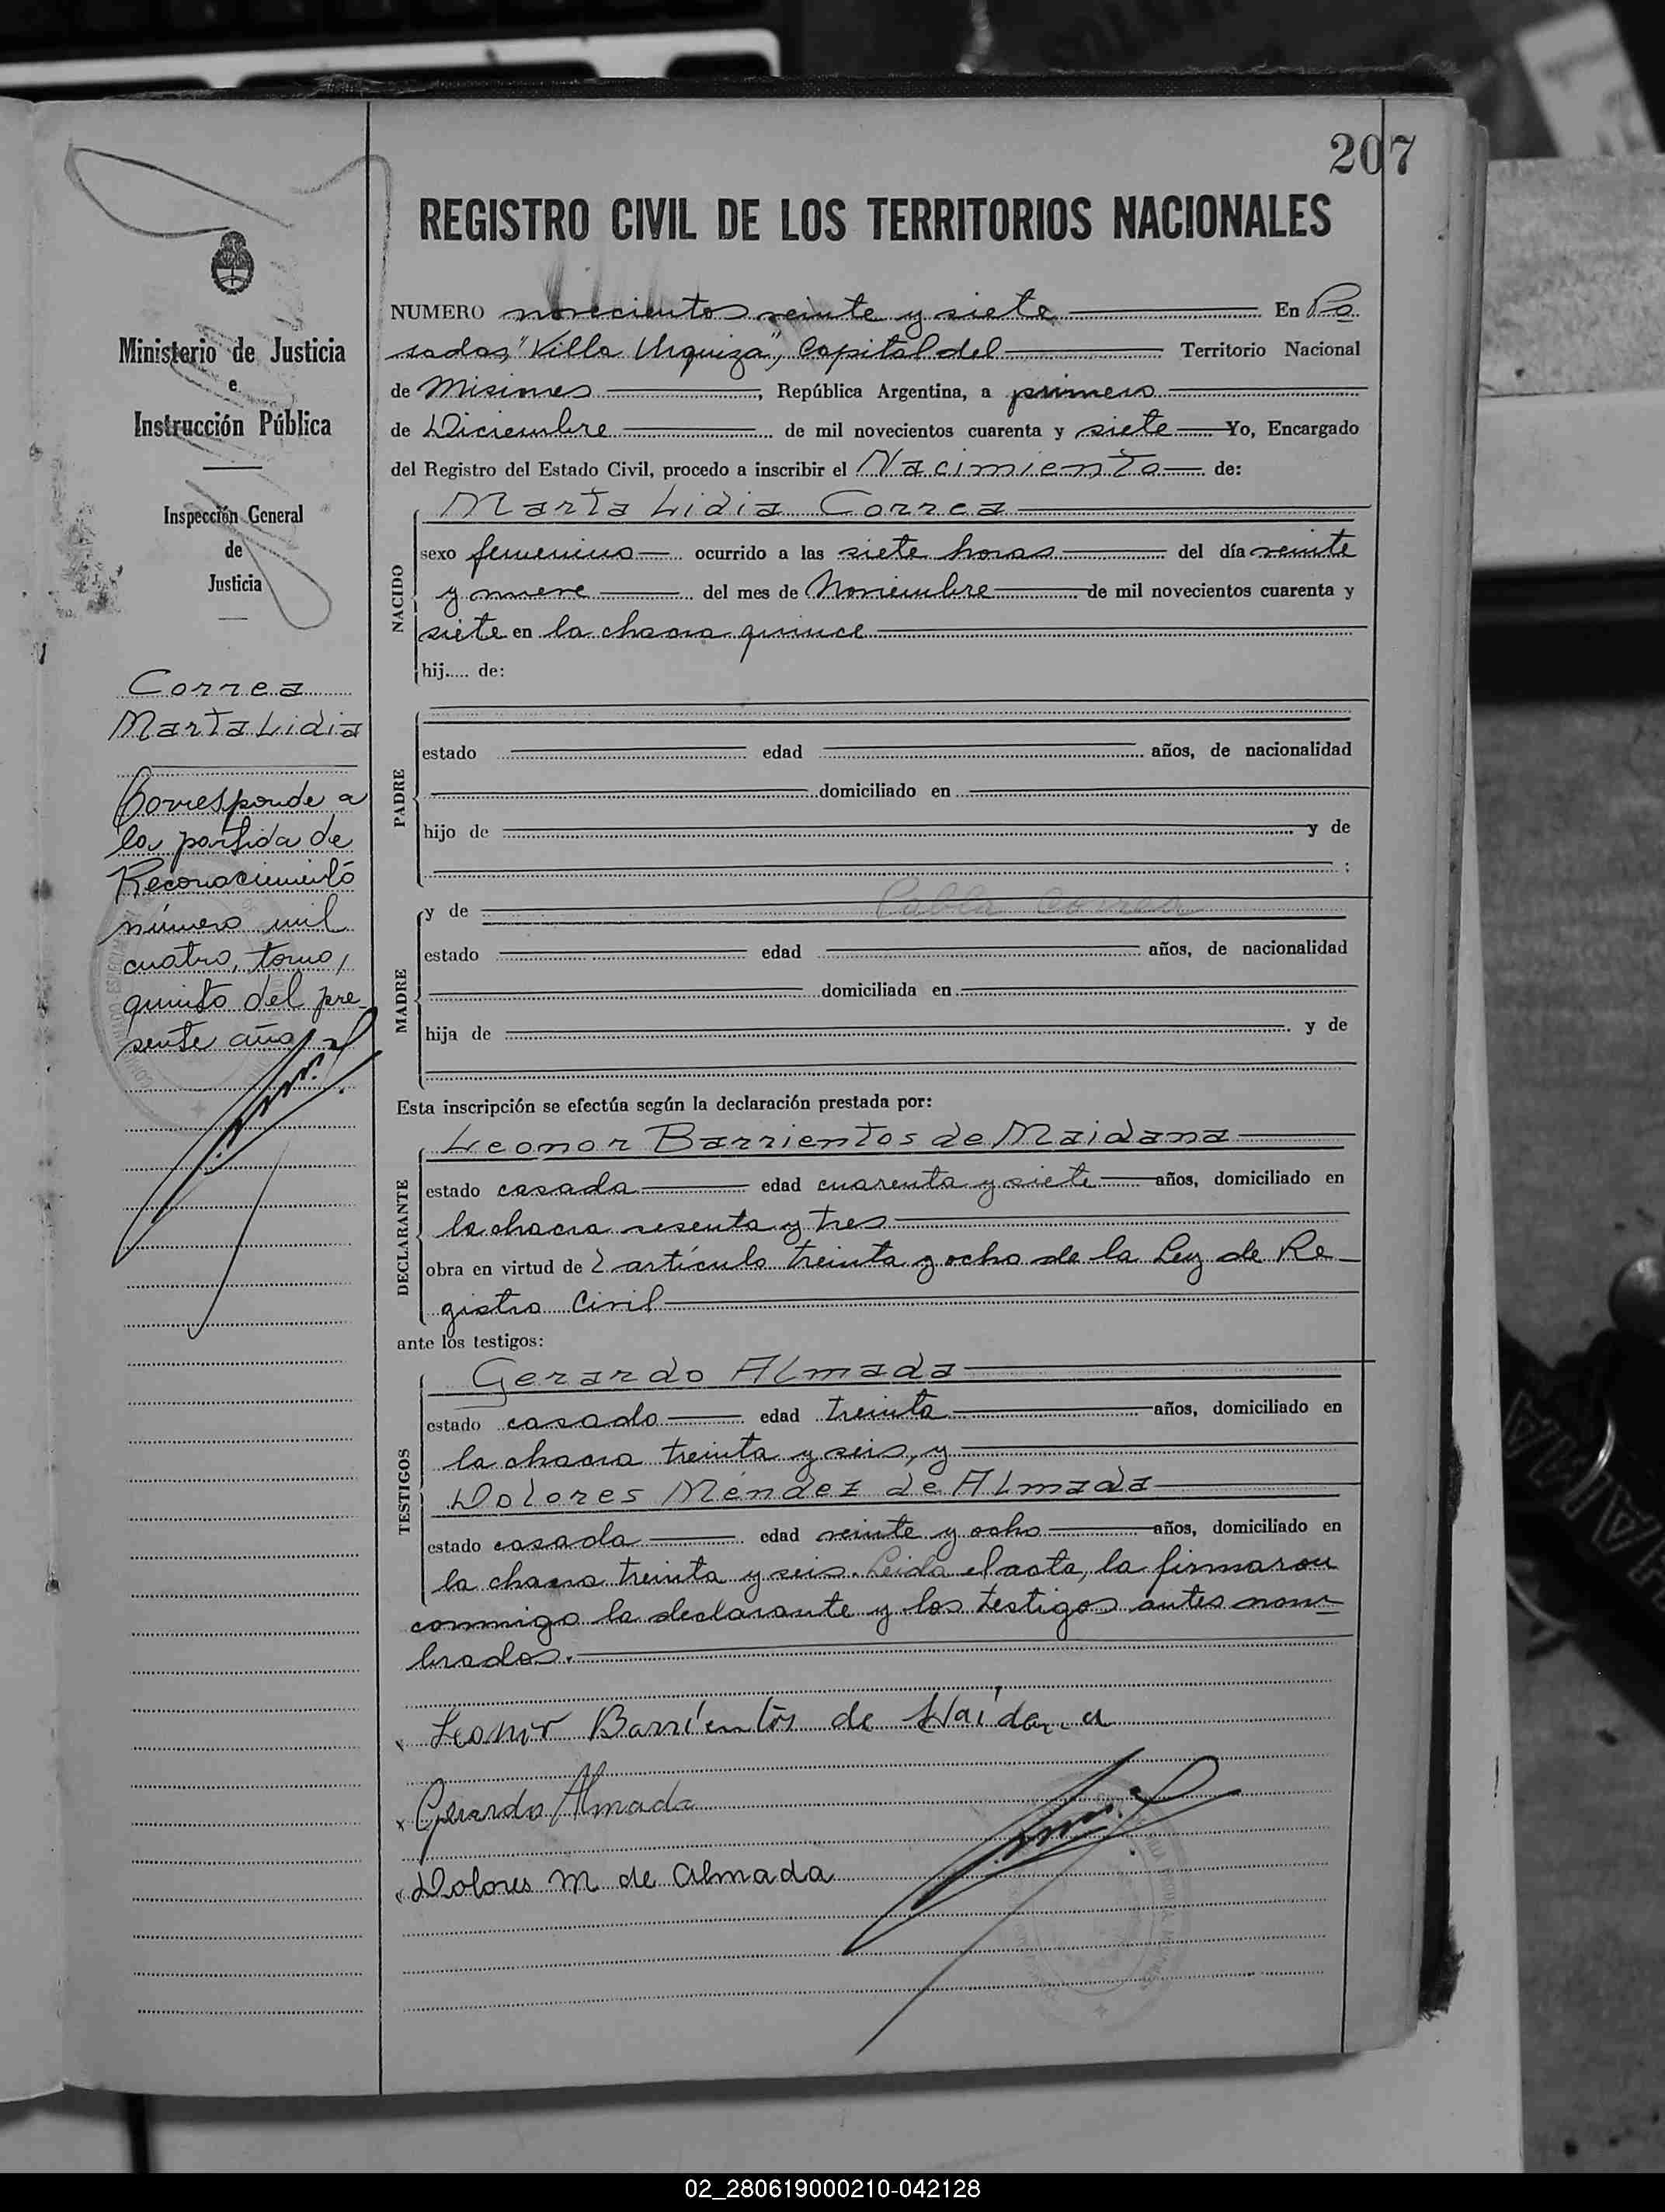 207
REGISTRO CIVIL DE LOS TERRITORIOS NACIONALES
Ministerio de Justicia
e
Instrucción Pública
Inspección General
de
Justicia
Correa
Marta Lidia
Corresponde a
la partida de
Reconocimiento
número mil
cuatro, tomo,
quinto del pre-
sente año
NUMERO novecientos veinte y siete En Po
sadas, "Villa Urquiza", Capital del Territorio Nacional
de Misiones, República Argentina, a primero
de Diciembre de mil novecientos cuarenta y siete Yo, Encargado
del Registro del Estado Civil, procedo a inscribir el Nacimiento de:
NACIDO
Marta Lidia Correa
sexo femenino ocurrido a las siete horas del día veinte
y nueve del mes de Noviembre de mil novecientos cuarenta y
siete en la chacra quince
hij..... de:
PADRE
estado edad años, de nacionalidad
domiciliado en
hijo de y de
;
MADRE
y de Pabla Correa
estado edad años, de nacionalidad
domiciliada en
hija de y de
Esta inscripción se efectúa según la declaración prestada por:
DECLARANTE
Leonor Barrientos de Maidana
estado casada edad cuarenta y siete años, domiciliado en
la chacra sesenta y tres
obra en virtud de l artículo treinta y ocho de la Ley de Re-
gistro Civil
ante los testigos:
TESTIGOS
Gerardo Almada
estado casado edad treinta años, domiciliado en
la chacra treinta y seis, y
Dolores Méndez de Almada
estado casada edad veinte y ocho años, domiciliado en
la chacra treinta y seis. Leida el acta, la firmaron
conmigo la declarante y los testigos antes nom-
brados.
Leonor Barrientos de Maidana
x Gerardo Almada
Dolores M de Almada
02_280619000210-042128